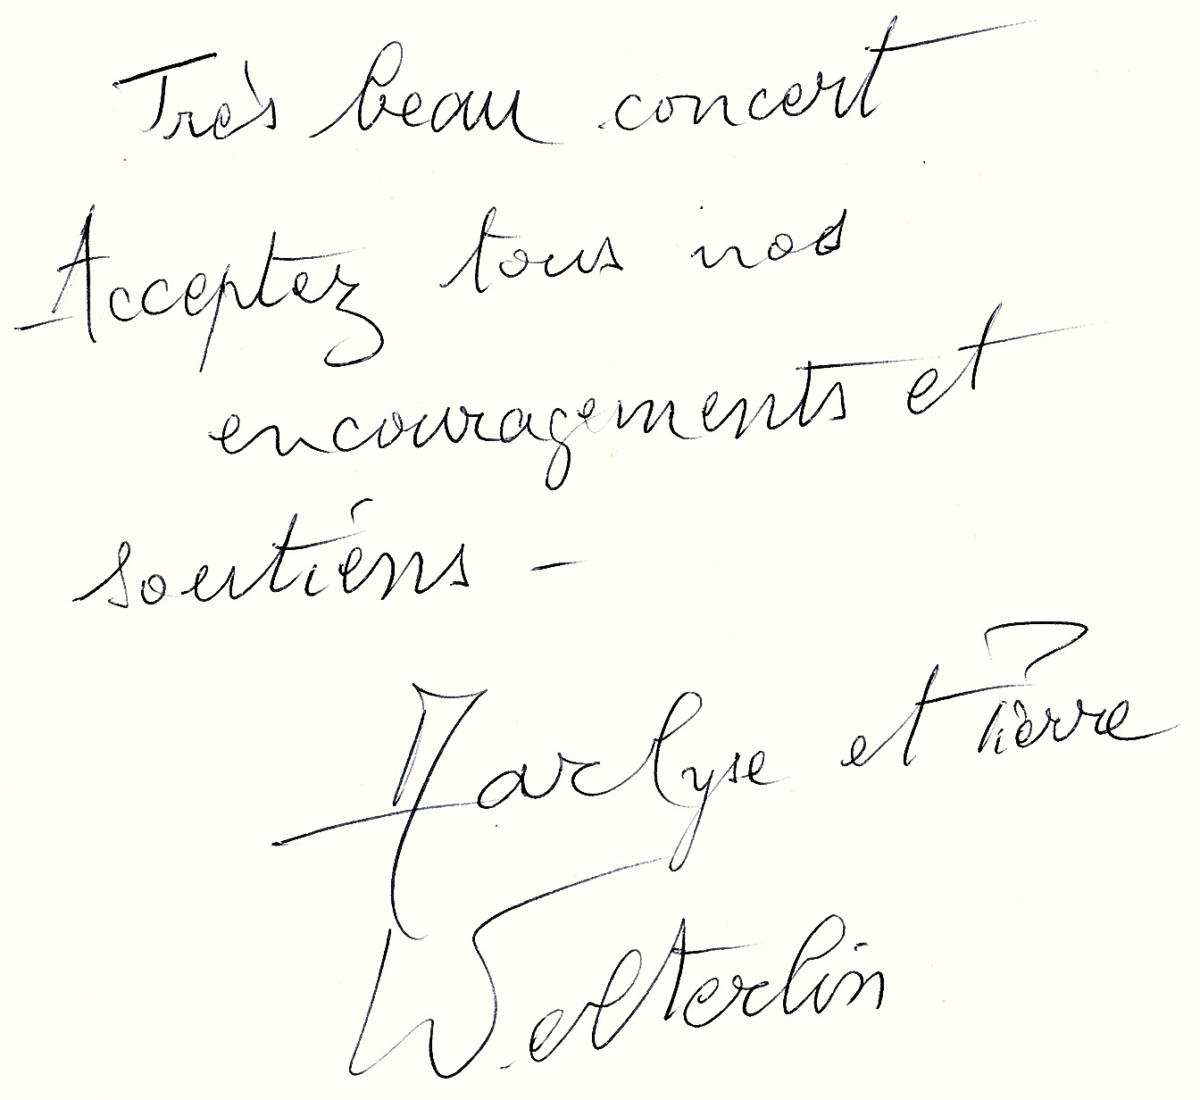 Très beau concert
Acceptez tous nos
encouragements et
soutiens -
Marlyse et Pierre
Welterlin